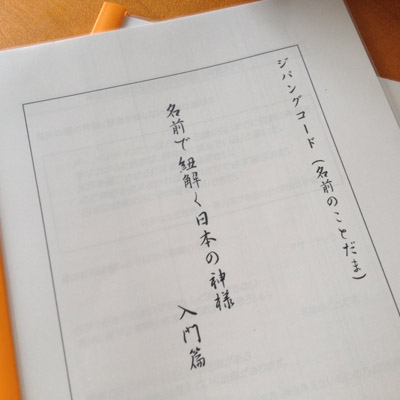 ジパングコード（名前のことだま）
名前で紐解く日本の神様
入門篇